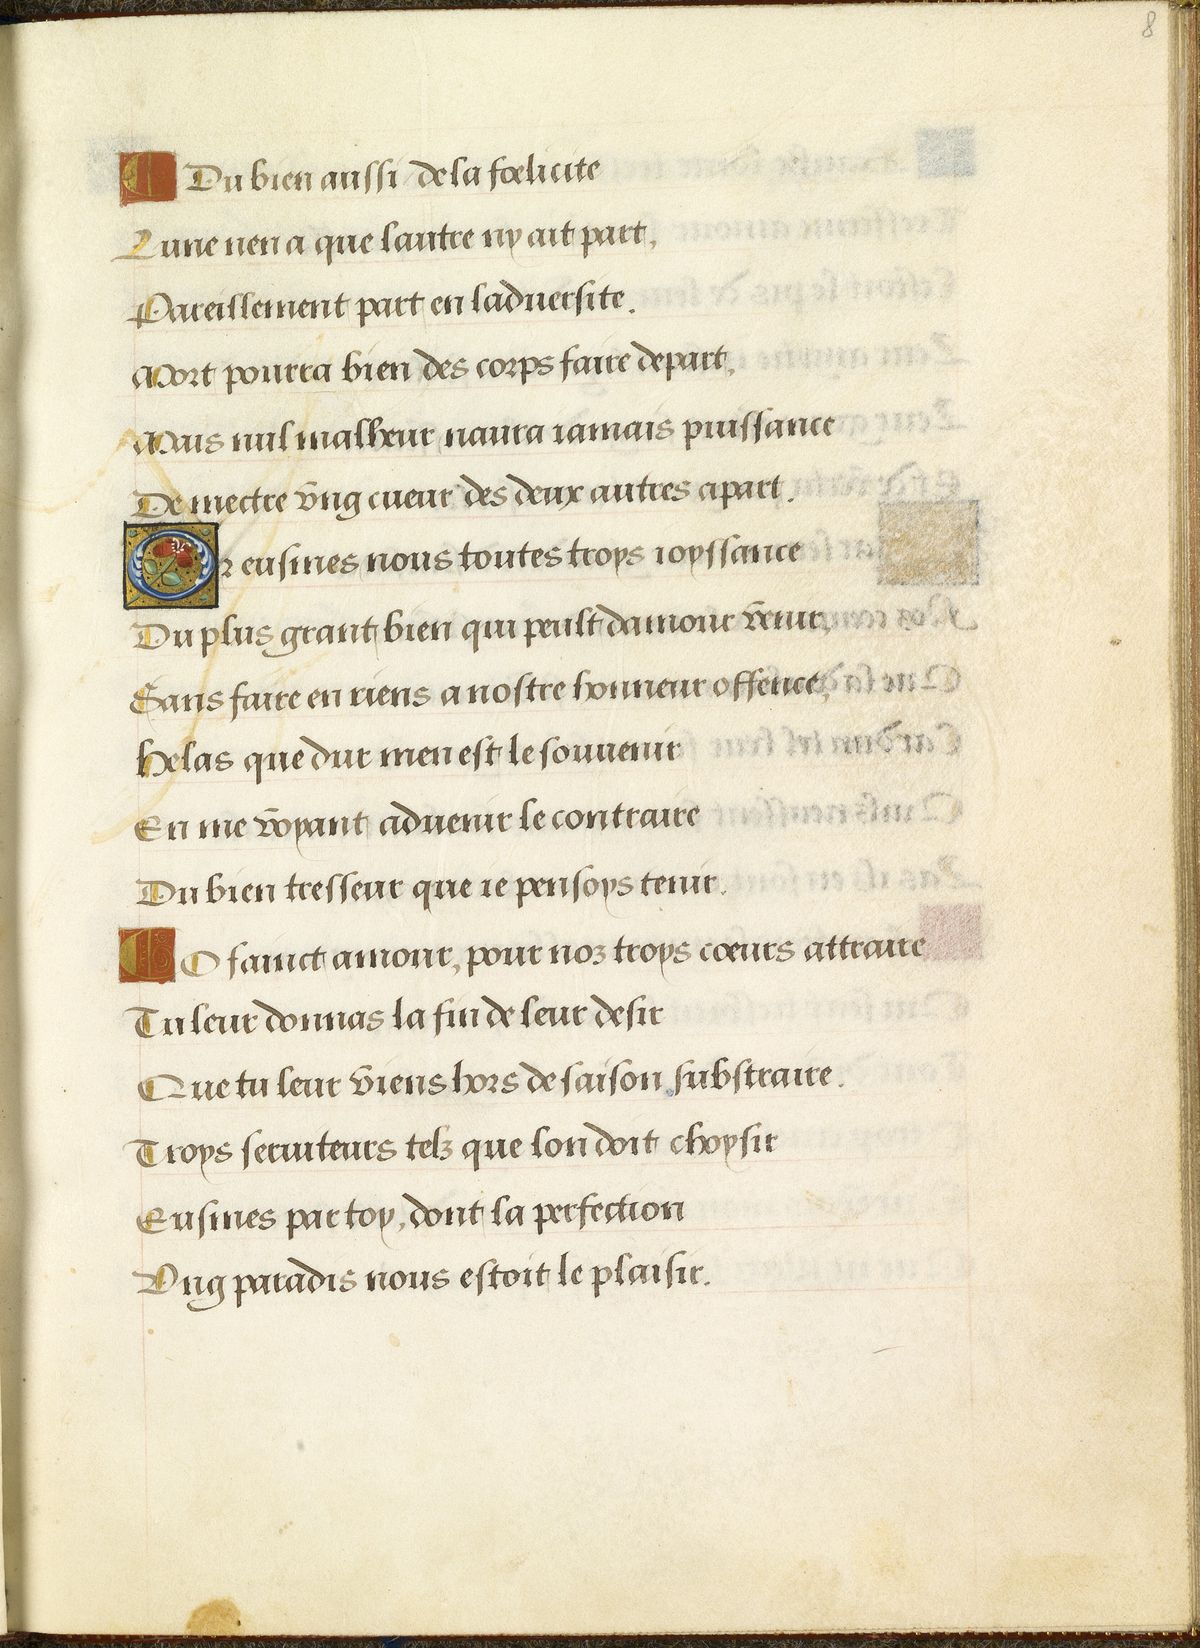 8
Du bien aussi / de la fœlicite
Lune nen a que lautre ny ait part,
Pareillement part en laduersite.
Mort pourra bien des corps faire depart,
Mais nul malheur naura iamais puissance
De mectre vng cueur des deux autres apart.
Or eusmes nous toutes troys ioyssance
Du plus grant bien qui peult damour venir,
Sans faire en riens a nostre honneur offence,
Helas que dur men est le souuenir
En me voyant aduenir le contraire
Du bien tresseur que ie pensoys tenir.
O sainct amour, pour noz troys cœurs attraire
Tu leur donnas la fin de leur desir
Que tu leur viens hors de saison substraire.
Troys seruiteurs telz que lon doit choysir
Eusmes par toy, dont la perfection
Vng paradis nous estoit le plaisir.